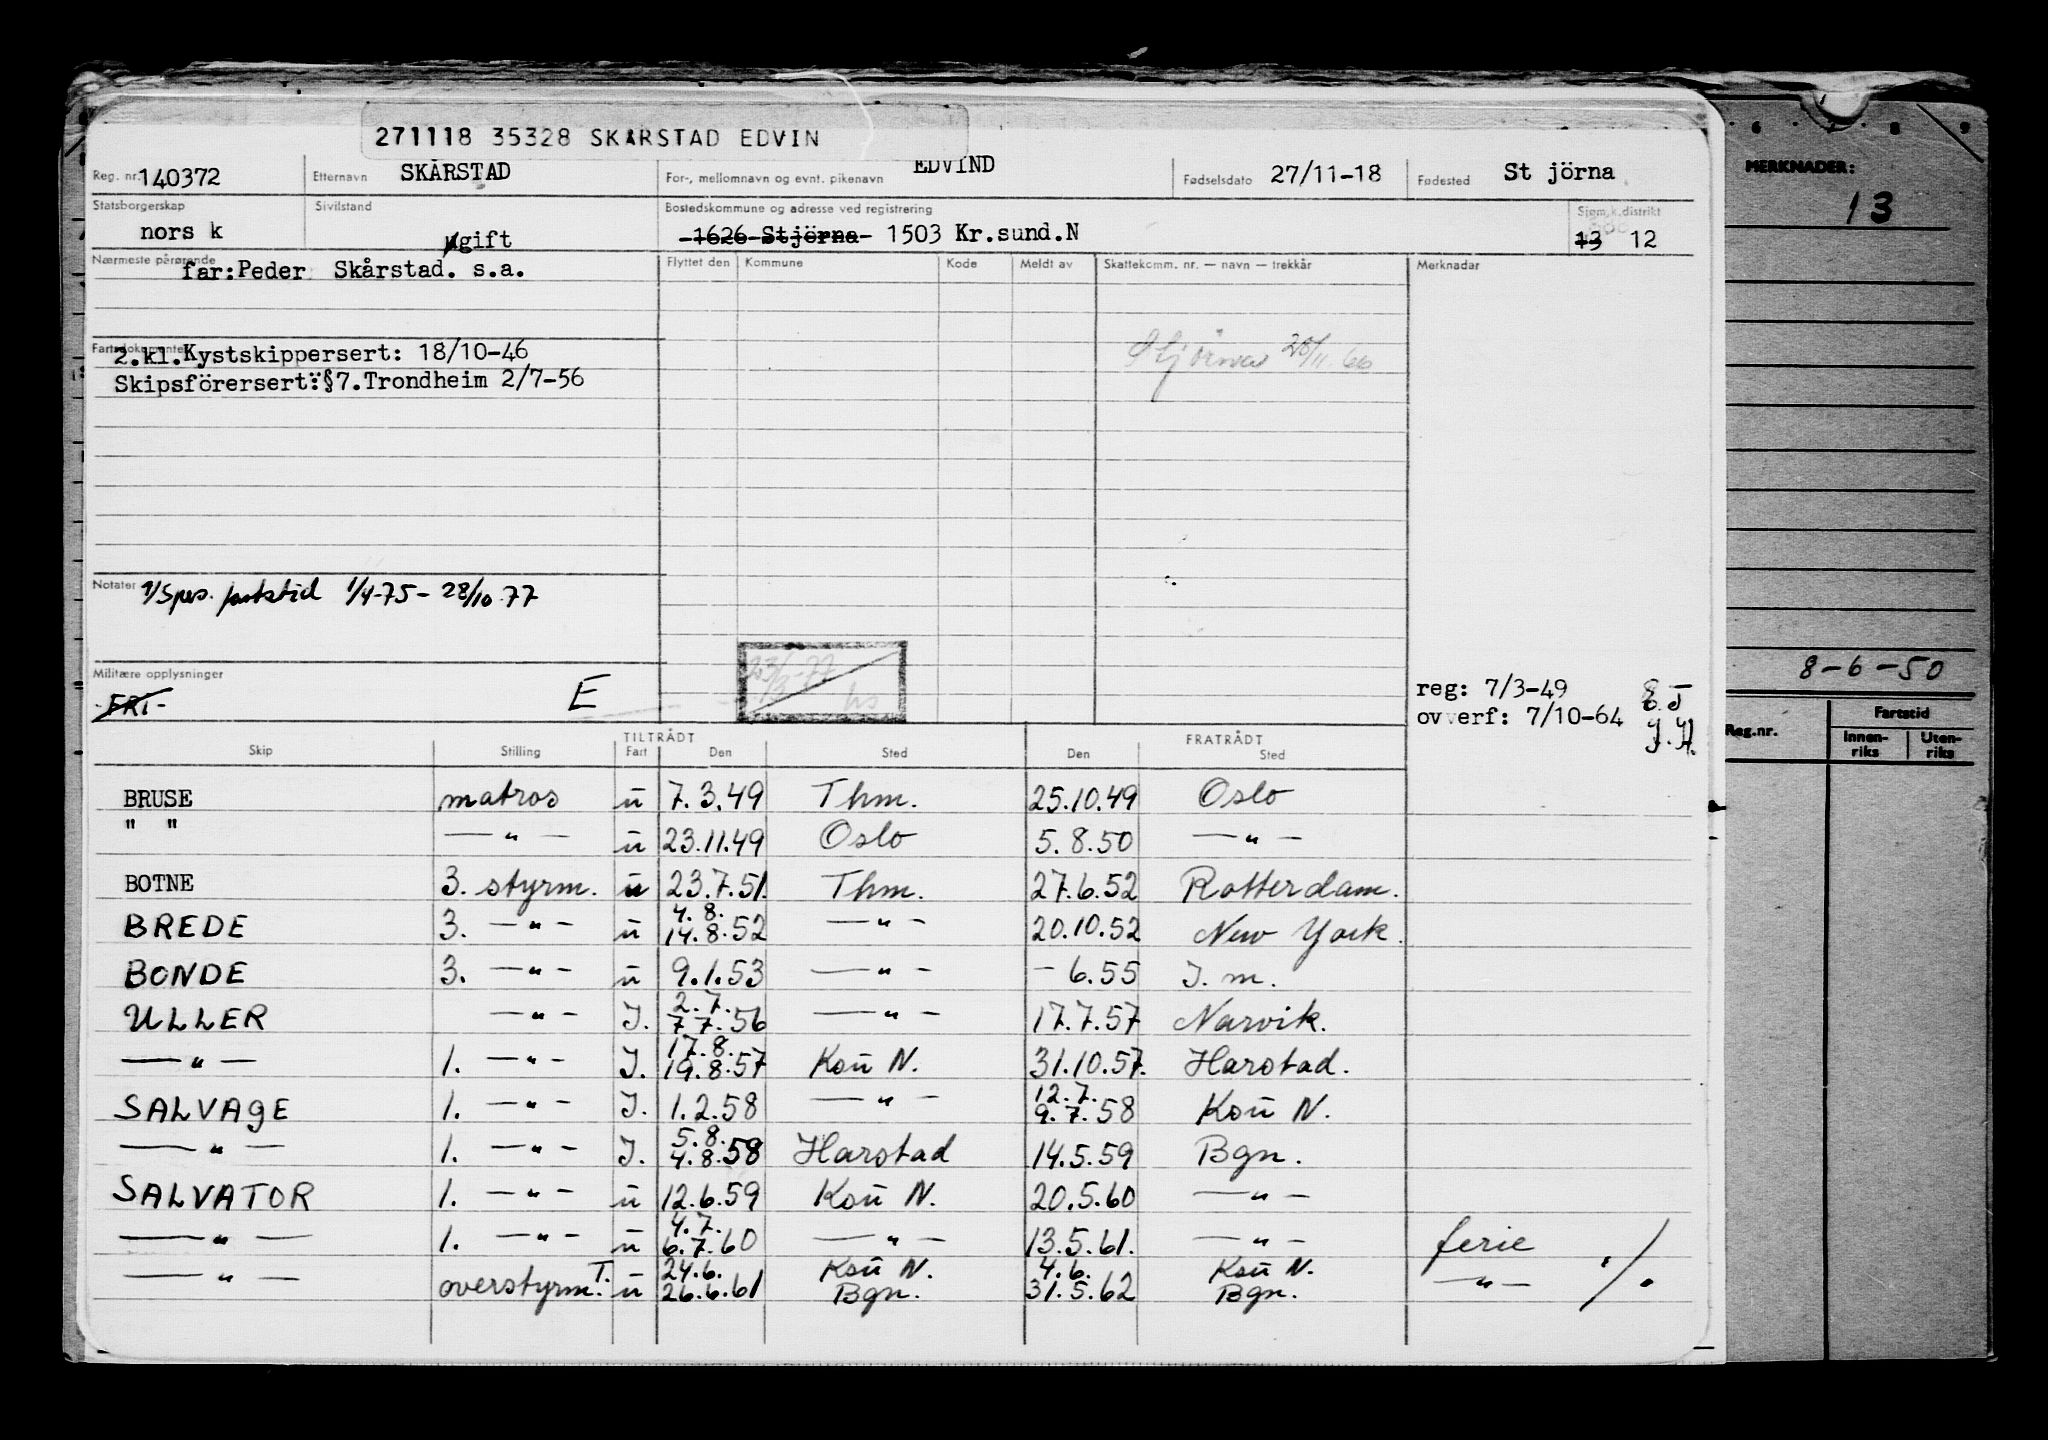 271118 35328 SKARSTAD EDVIN
Reg. nr. 140372 Etternavn SKÅRSTAD For-, mellomnavn og evnt. pikenavn EDVIND Fødselsdato 27/11-18 Fødested St jörna
Statsborgerskap norsk Sivilstand ugift Bostedskommune og adresse ved registrering 1626 Stjörna 1503 Kr.sund.N Sjøm.k.distrikt 13 12
Nærmeste pårørende far:Peder Skårstad. s.a. Flyttet den Kommune Kode Meldt av Skattekomm. nr. — navn — trekkår Merknader
Stjørna 28/11.66
Fartsdokumenter 2.kl.Kystskippersert: 18/10-46
Skipsförersert:§7.Trondheim 2/7-56
Notater 1/Spes. fartstid 1/4-75 - 28/10 77
Militære opplysninger
FRI E
23/3-77 hs
reg: 7/3-49 E.J
overf: 7/10-64 J.H.
TILTRÅDT FRATRÅDT
Skip Stilling Fart Den Sted Den Sted
BRUSE matros u 7.3.49 Thm. 25.10.49 Oslo
" " — " — u 23.11.49 Oslo 5.8.50 — " —
BOTNE 3. styrm. u 23.7.51. Thm. 27.6.52 Rotterdam.
4.8.
BREDE 3. — " — u 14.8.52 — " — 20.10.52 New York.
BONDE 3. — " — u 9.1.53 — " — – 6.55 J. m.
2.7.
ULLER — " — J. 7.7.56 — " — 17.7.57 Narvik.
17.8.
— " — 1. — " — J. 19.8.57 Ksu N. 31.10.57. Harstad.
12.7.
SALVAGE 1. — " — J. 1.2.58 — " — 9.7.58 Ksu N.
5.8.
— " — 1. — " — J. 4.8.58 Harstad 14.5.59 Bgn.
SALVATOR 1. — " — u 12.6.59 Ksu N. 20.5.60 — " —
4.7.
— " — 1. — " — u 6.7.60 — " — 13.5.61. — " — ferie
24.6. Ksu N. 4.6. Ksu N.
— " — overstyrm.T. u 26.6.61 Bgn. 31.5.62 Bgn. — " — ./.
6 7 8 9
MERKNADER:
13
8-6-50
Reg.nr. Fartstid
Innen-riks Uten-riks